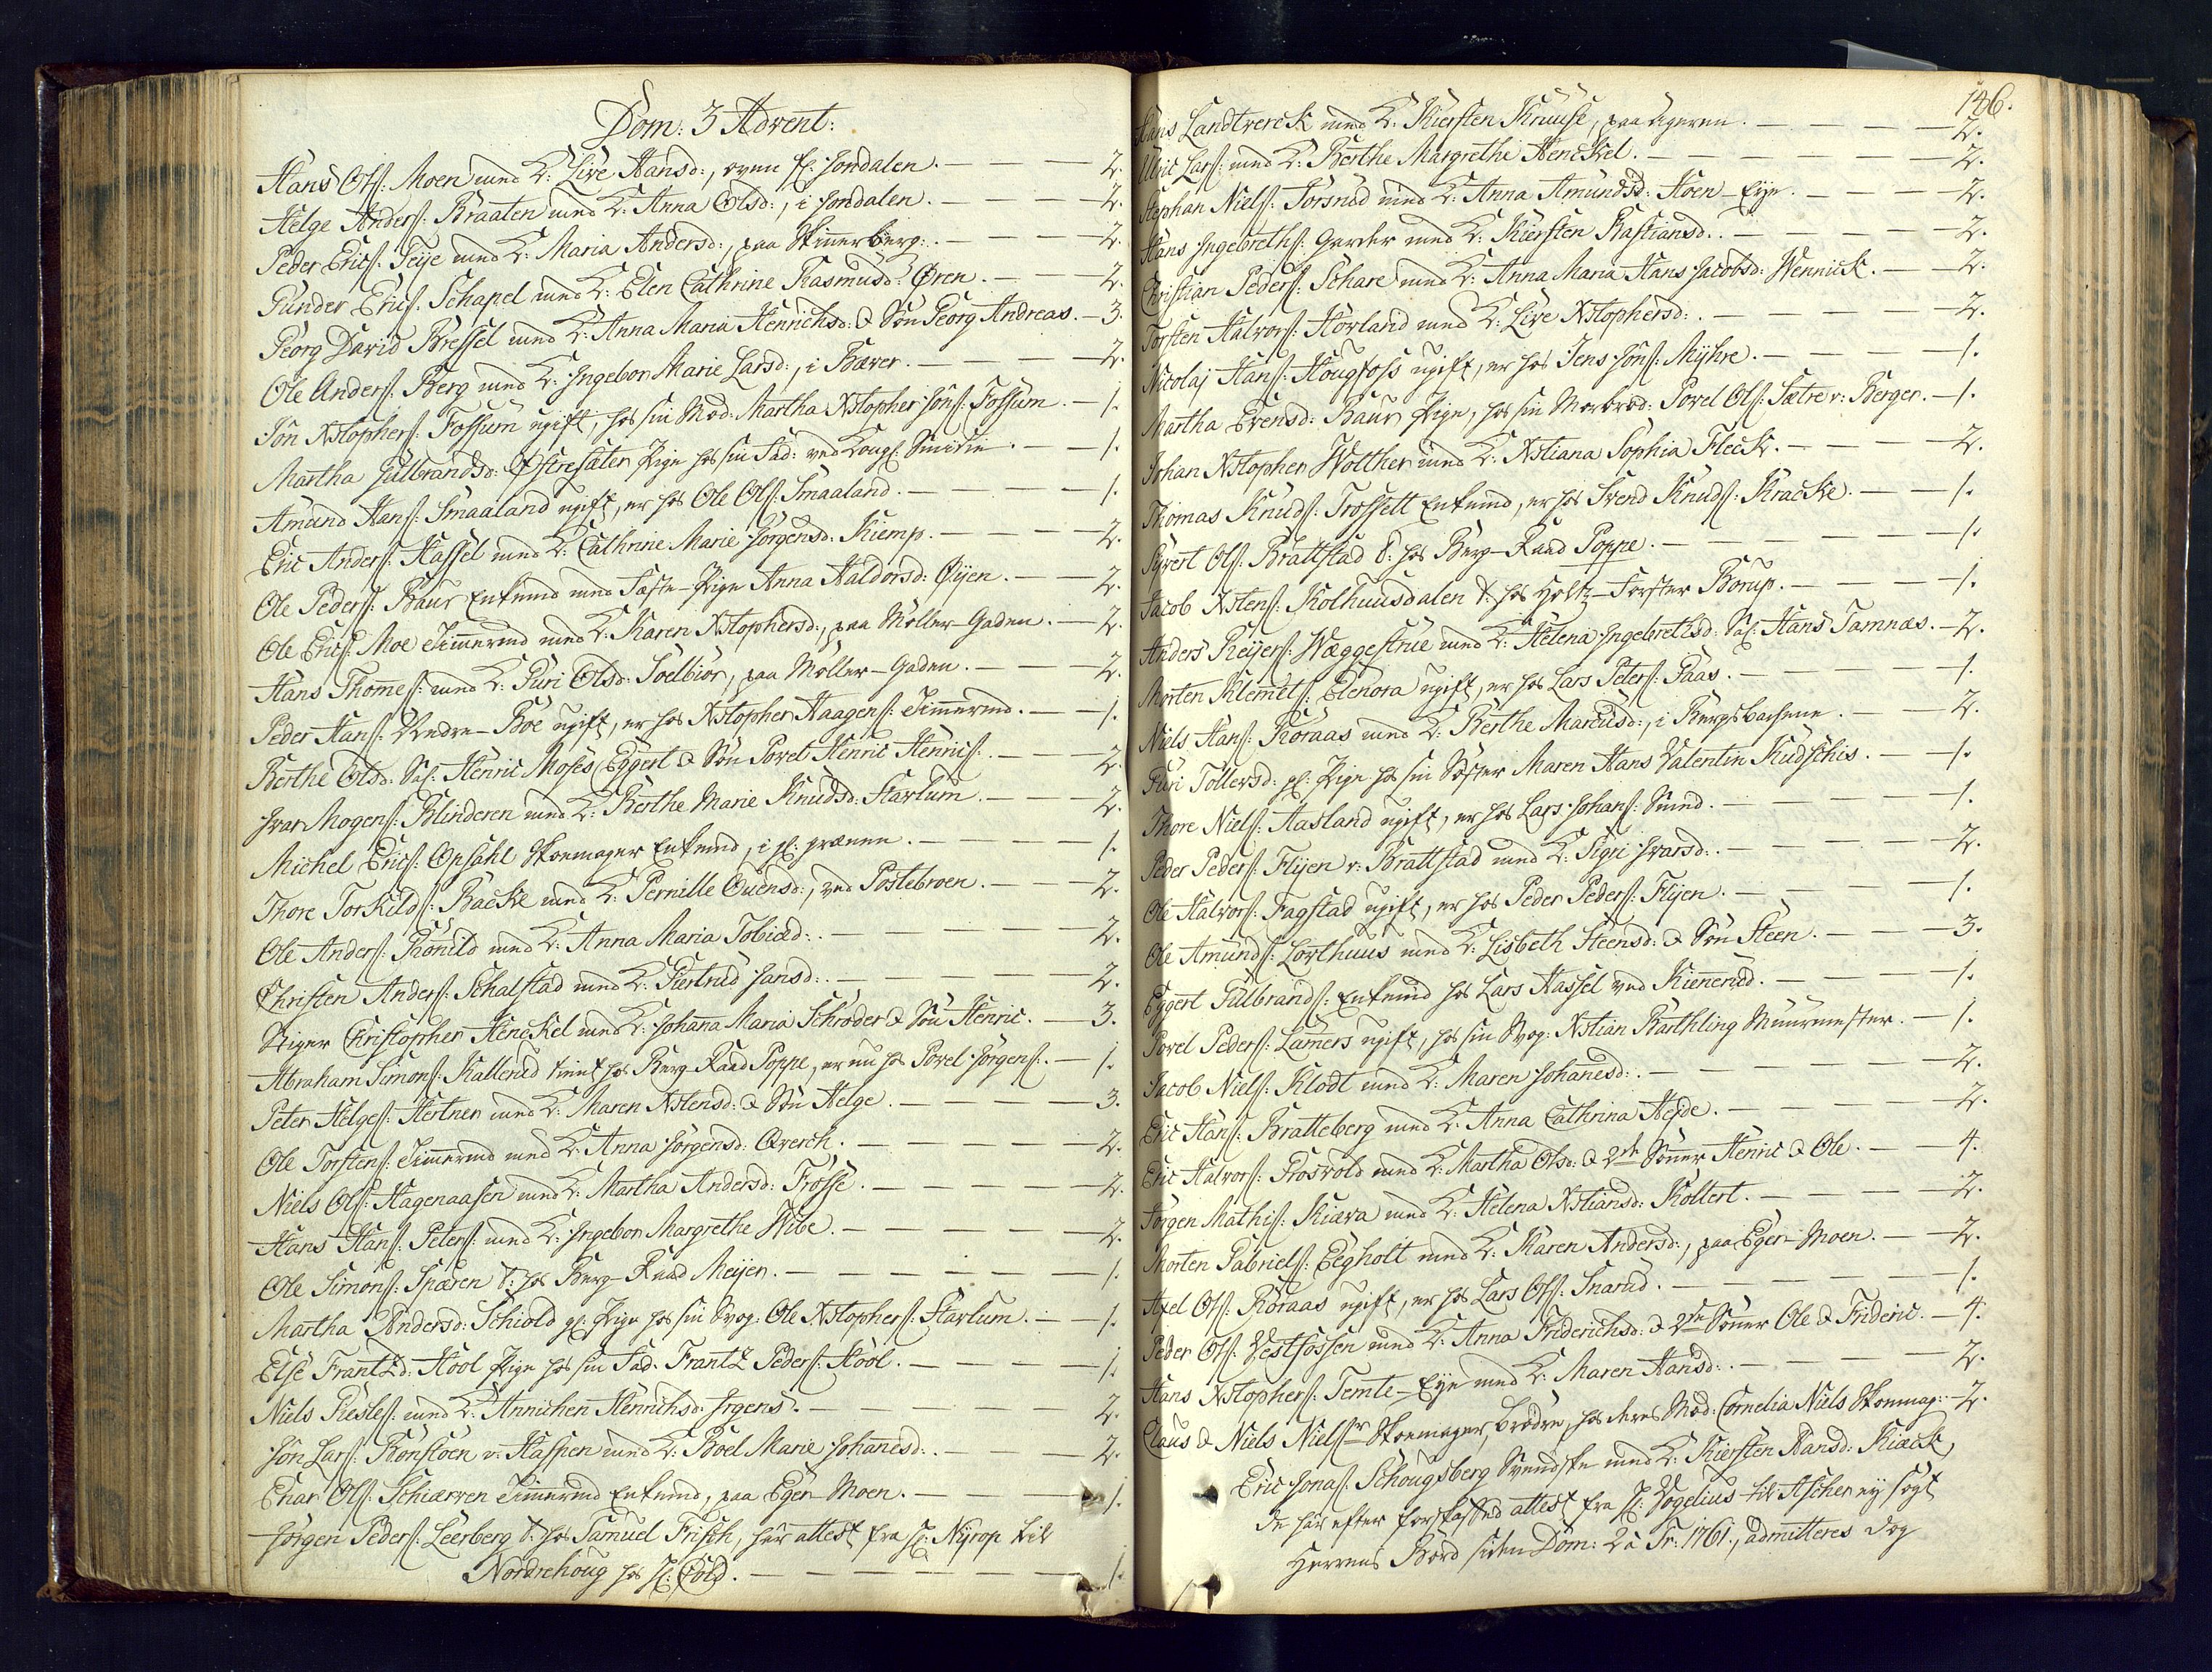 Dom: 3 Advent:
Hans Ols: Moen med K: Live Hansd:, oven f: Jondalen. 2.
Helge Anders: Braaten med K: Anna Olsd:, i Jondalen. 2.
Peder Erics: Teije med K: Maria Andersd:, paa Skinnerberg:. 2.
Gunder Erics: Schapel med K: Elen Cathrine Rasmusd: Øren. 2.
Georg David Bressel med K: Anna Maria Henrichsd: & Søn Georg Andreas. 3.
Ole Anders: Berg med K: Ingebor Marie Larsd:, i Bæver. 2.
Jon Xstophers: Fossum ugift, hos sin Mod: Martha Xstopher Jons: Fossum. 1.
Martha Gulbrandsd: Østresæter Pige hos sin Fad: ved Kongs: Smidie. 1.
Amund Hans: Smaaland ugift, er hos Ole Ols: Smaaland. 1.
Eric Anders: Hassel med K: Cathrine Marie Jørgensd: Kiemp. 2.
Ole Peders: Baur Enkemd med Fæste-Pige Anna Haldorsd: Øijen. 2.
Ole Erics: Moe Timmermd med K: Karen Xstophersd:, paa Møller-Gaden. 2.
Hans Thomes: med K: Guri Olsd: Soelbiør, paa Møller-Gaden. 2.
Peder Hans: Nedre-Boe ugift, er hos Xstopher Haagens: Timmermd. 1.
Berthe Olsd: Sal: Henric Moses Eggert & Søn Povel Henric Henrics: 2.
Ivar Mogens: Blinderen med K: Berthe Marie Knudsd: Starlum. 2.
Michel Erics: Opsahl Skoemager Enkemd, i gl: grænen. 1.
Thore Torkilds: Backe med K: Pernille Ouensd:, ved Postebroen. 2.
Ole Anders: Ronild med K: Anna Maria Tobiæd:. 2.
Christen Anders: Schalstad med K: Giertrud Jansd:. 2.
Stiger Christopher Henckel med K: Johanna Maria Schrøder & Søn Henric. 3.
Abraham Simons: Kallerud tient hos Berg Raad Poppe, er nu hos Povel Jørgens:. 1.
Peter Helges: Hertner med K: Maren Xstensd: & Søn Helge. 3.
Ole Torstens: Timmermd med K: Anna Jørgensd: Qverch. 2.
Niels Ols: Hagenaasen med K: Martha Andersd: Frosse. 2.
Hans Hans: Peters: med K: Ingebor Margrethe Wibe. 2.
Ole Simons: Spæren t: hos Berg-Raad Meijer. 1.
Martha Andersd: Schiold gl: Pige hos sin Svog: Ole Xstophers: Starlum. 1.
Else Frantzd: Hool Pige hos sin Fad: Frantz Peders: Hool. 1.
Niels Giesles: med K: Annichen Henrichsd: Irgens. 2.
Jon Lars: Ronsloen v: Haspen med K: Boel Marie Johanesd:. 2.
Enar Ols: Schiærven Timmermd Enkemd, paa Eger-Moen. 1.
Jørgen Peders: Leerberg t: hos Samuel Frisch, har attest fra H: Nyrop til
Nordrehoug hos H: Cold. 1.
146.
Hans Landtverck med K: Kiersten Kruuse, paa ageren. 2.
Ulric Lars: med K: Berthe Margrethe Henckel. 2.
Stephan Niels: Torsrud med K: Anna Amundsd: Hoen-Eije. 2.
Hans Ingebreths: Garder med K: Kiersten Bastiansd:. 2.
Christian Peders: Schare med K: Anna Maria Hans Jacobsd: Wennick. 2.
Torsten Halvors: Horland med K: Live Xstophersd:. 2.
Nicolaj Hans: Hougfoss ugift, er hos Jens Jons: Mijhre. 1.
Martha Evensd: Baur Pige, hos sin Morbrod: Povel Ols: Sætre v: Berger. 1.
Johan Xstopher Wolther med K: Xstiana Sophia Fleck. 2.
Thomas Knuds: Frossett Enkemd, er hos Svend Knuds: Kracke. 1.
Syvert Ols: Brattstad t: hos Berg-Raad Poppe. 1.
Jacob Xstens: Kolhuusdalen t: hos Holtz-Forster Borup. 1.
Anders Reijers: Wæggestrue med K: Helena Ingebrethsd: Sal: Hans Tamnæs. 2.
Morten Klemets: Elenora ugift, er hos Lars Peters: Paas. 1.
Niels Hans: Roraas med K: Berthe Marcusd:, i Bergsbachene. 2.
Guri Tollersd: gl: Pige hos sin Søster Maren Hans Valentin Kudschis. 1.
Thore Niels: Aasland ugift, er hos Lars Johans: Smed. 1.
Peder Peders: Flijen v: Brattstad med K: Sigri Ivarsd:. 2.
Ole Halvors: Fagstad ugift, er hos Peder Peders: Flijen. 1.
Ole Amunds: Lorthuus med K: Lisbeth Steensd: & Søn Steen. 3.
Eggert Gulbrands: Enkemd hos Lars Hassel ved Kiennerud. 1.
Povel Peders: Lamers ugift, hos sin Svog: Xstian Barthling Muurmester. 1.
Jacob Niels: Klodt med K: Maren Johanesd:. 2.
Eric Hans: Bratteberg med K: Anna Cathrina Heyde. 2.
Eric Halvors: Frosvold med K: Martha Olsd: & 2de Sønner Henric & Ole. 4.
Jørgen Mathis: Kiæra med K: Helena Xstiansd: Kollert. 2.
Morten Gabriels: Eegholt med K: Karen Andersd:, paa Eger-Moen. 2.
Axel Ols: Roraas ugift, er hos Lars Ols: Snarud. 1.
Peder Ols: Vestfossen med K: Anna Friderichsd: & 2de Sønner Ole & Frideric. 4.
Hans Xstophers: Temte-Eije med K: Maren Hansd:. 2.
Claus & Niels Nielssr Skoemager, brødre, hos deres Mod: Cornelia Niels Skoemag: 2.
Eric Jonas: Schougsberg Svendske med K: Kiersten Hansd: Kiæck,
de har efter forfattet attest fra H: Vogelius til Ascher ey søgt
Herrens Bord siden Dom: 2 a Tr: 1761., admitteres dog